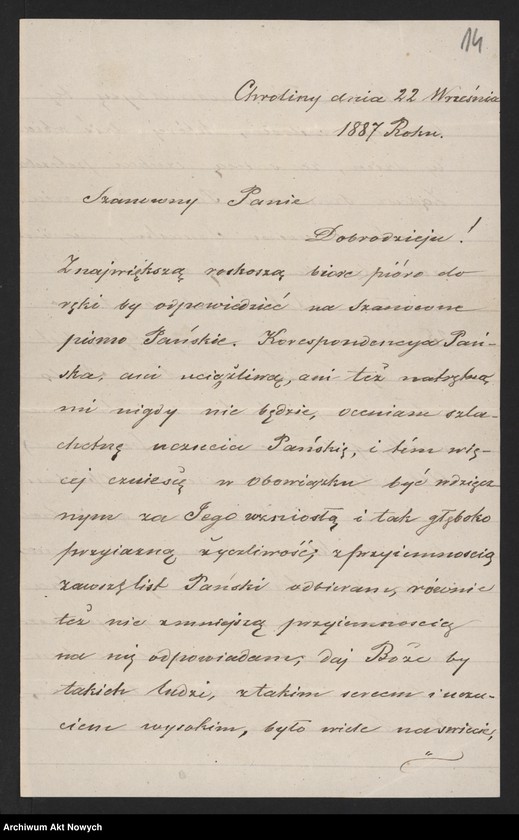 14
Chroliny dnia 22 Września
1887 Roku.
Szanowny Panie
Dobrodzieju!
Znajwiększą roskoszą biore pióro do
ręki by odpowiedzieć na Szanowne
pismo Pańskie. Korespondencya Pań-
ska, ani uciążliwą, ani też natrętną
mi nigdy nie będzie, oceniam szla-
chetne uczucia Pańskię, i tém wię-
cej czuiesię w obowiązku być wdzięcz
nym za Jego wzniosłą i tak głęboko
przyiazną życzliwość; zprzyiemnoscią
zawszę list Pański odbieram, równie
też nie zmniejszą przyiemnoscią
na nię odpowiadam; daj Boże by
takich ludzi, ztakim sercem i uczu-
ciem wysokim, było wiele naswiecie,
Archiwum Akt Nowych